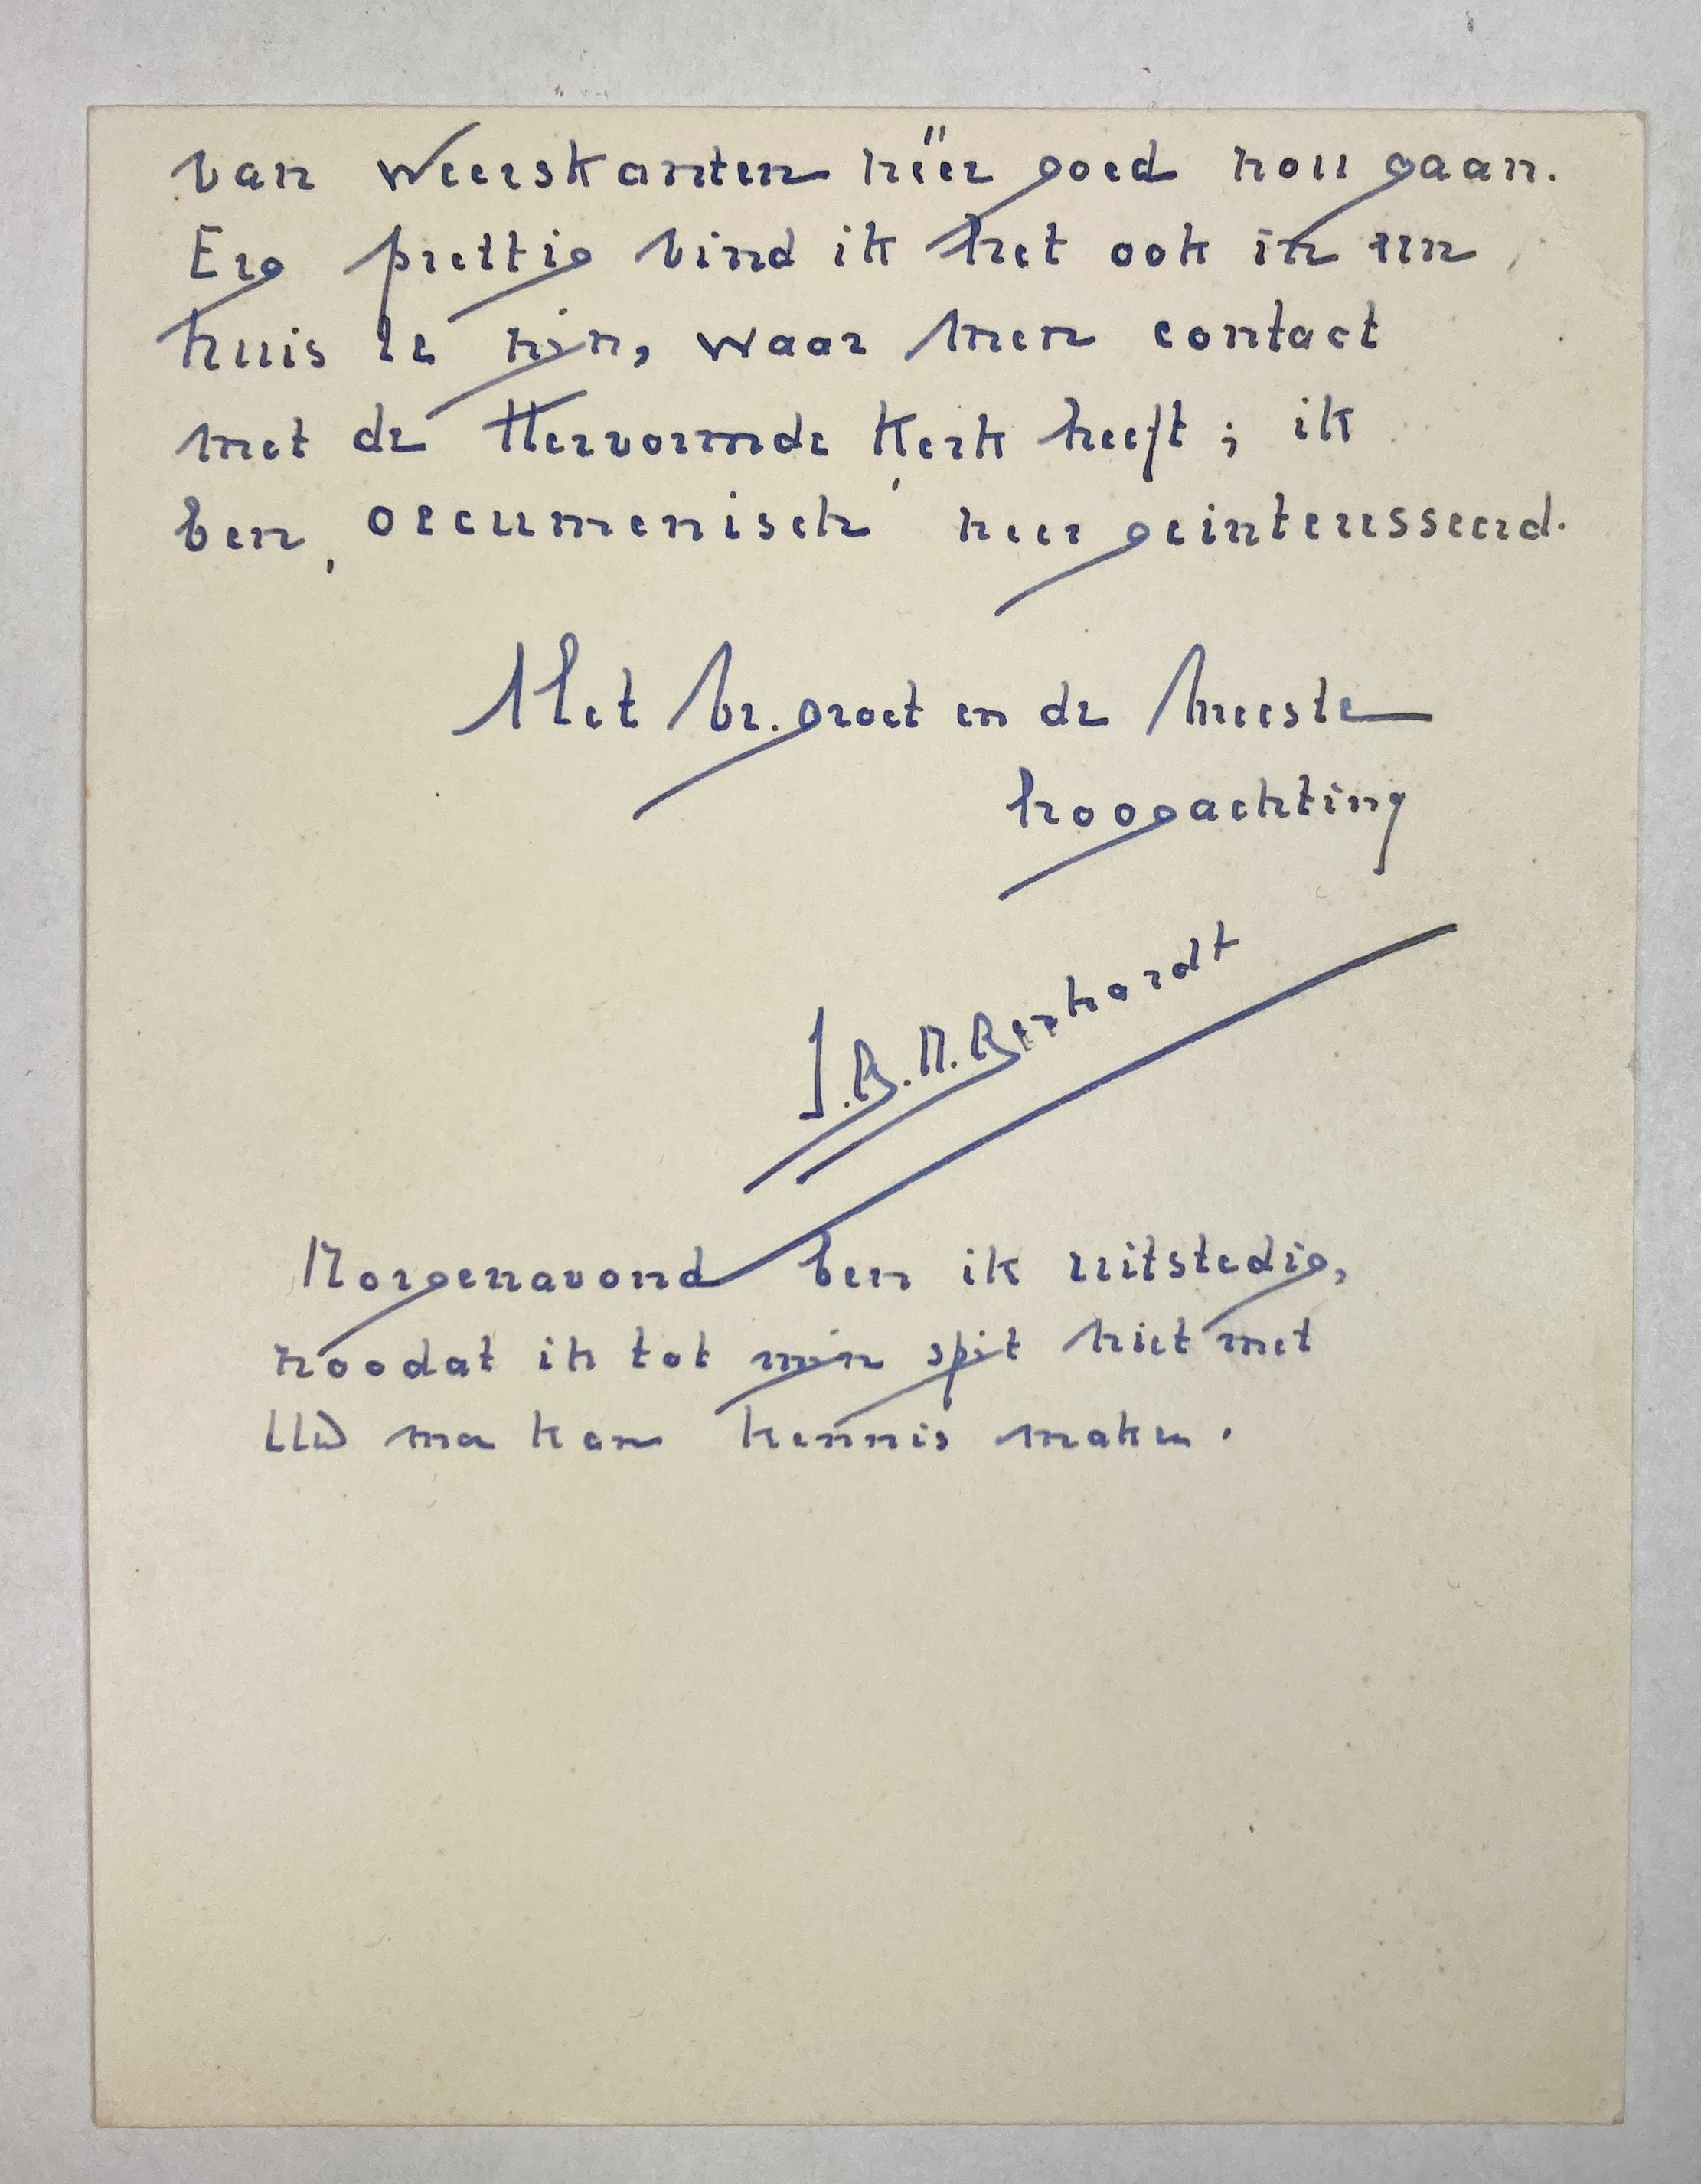 van weerskanten zéér goed zou gaan.
Erg prettig vind ik het ook in een
huis te zijn, waar men contact
met de Hervormde Kerk heeft; ik
ben ‚oecumenisch' zeer geinteresseerd.
Met vr. groet en de meeste
hoogachting
J.B.M. Berhardt
Morgenavond ben ik uitstedig,
zoodat ik tot mijn spijt niet met
UW ma kan kennis maken.